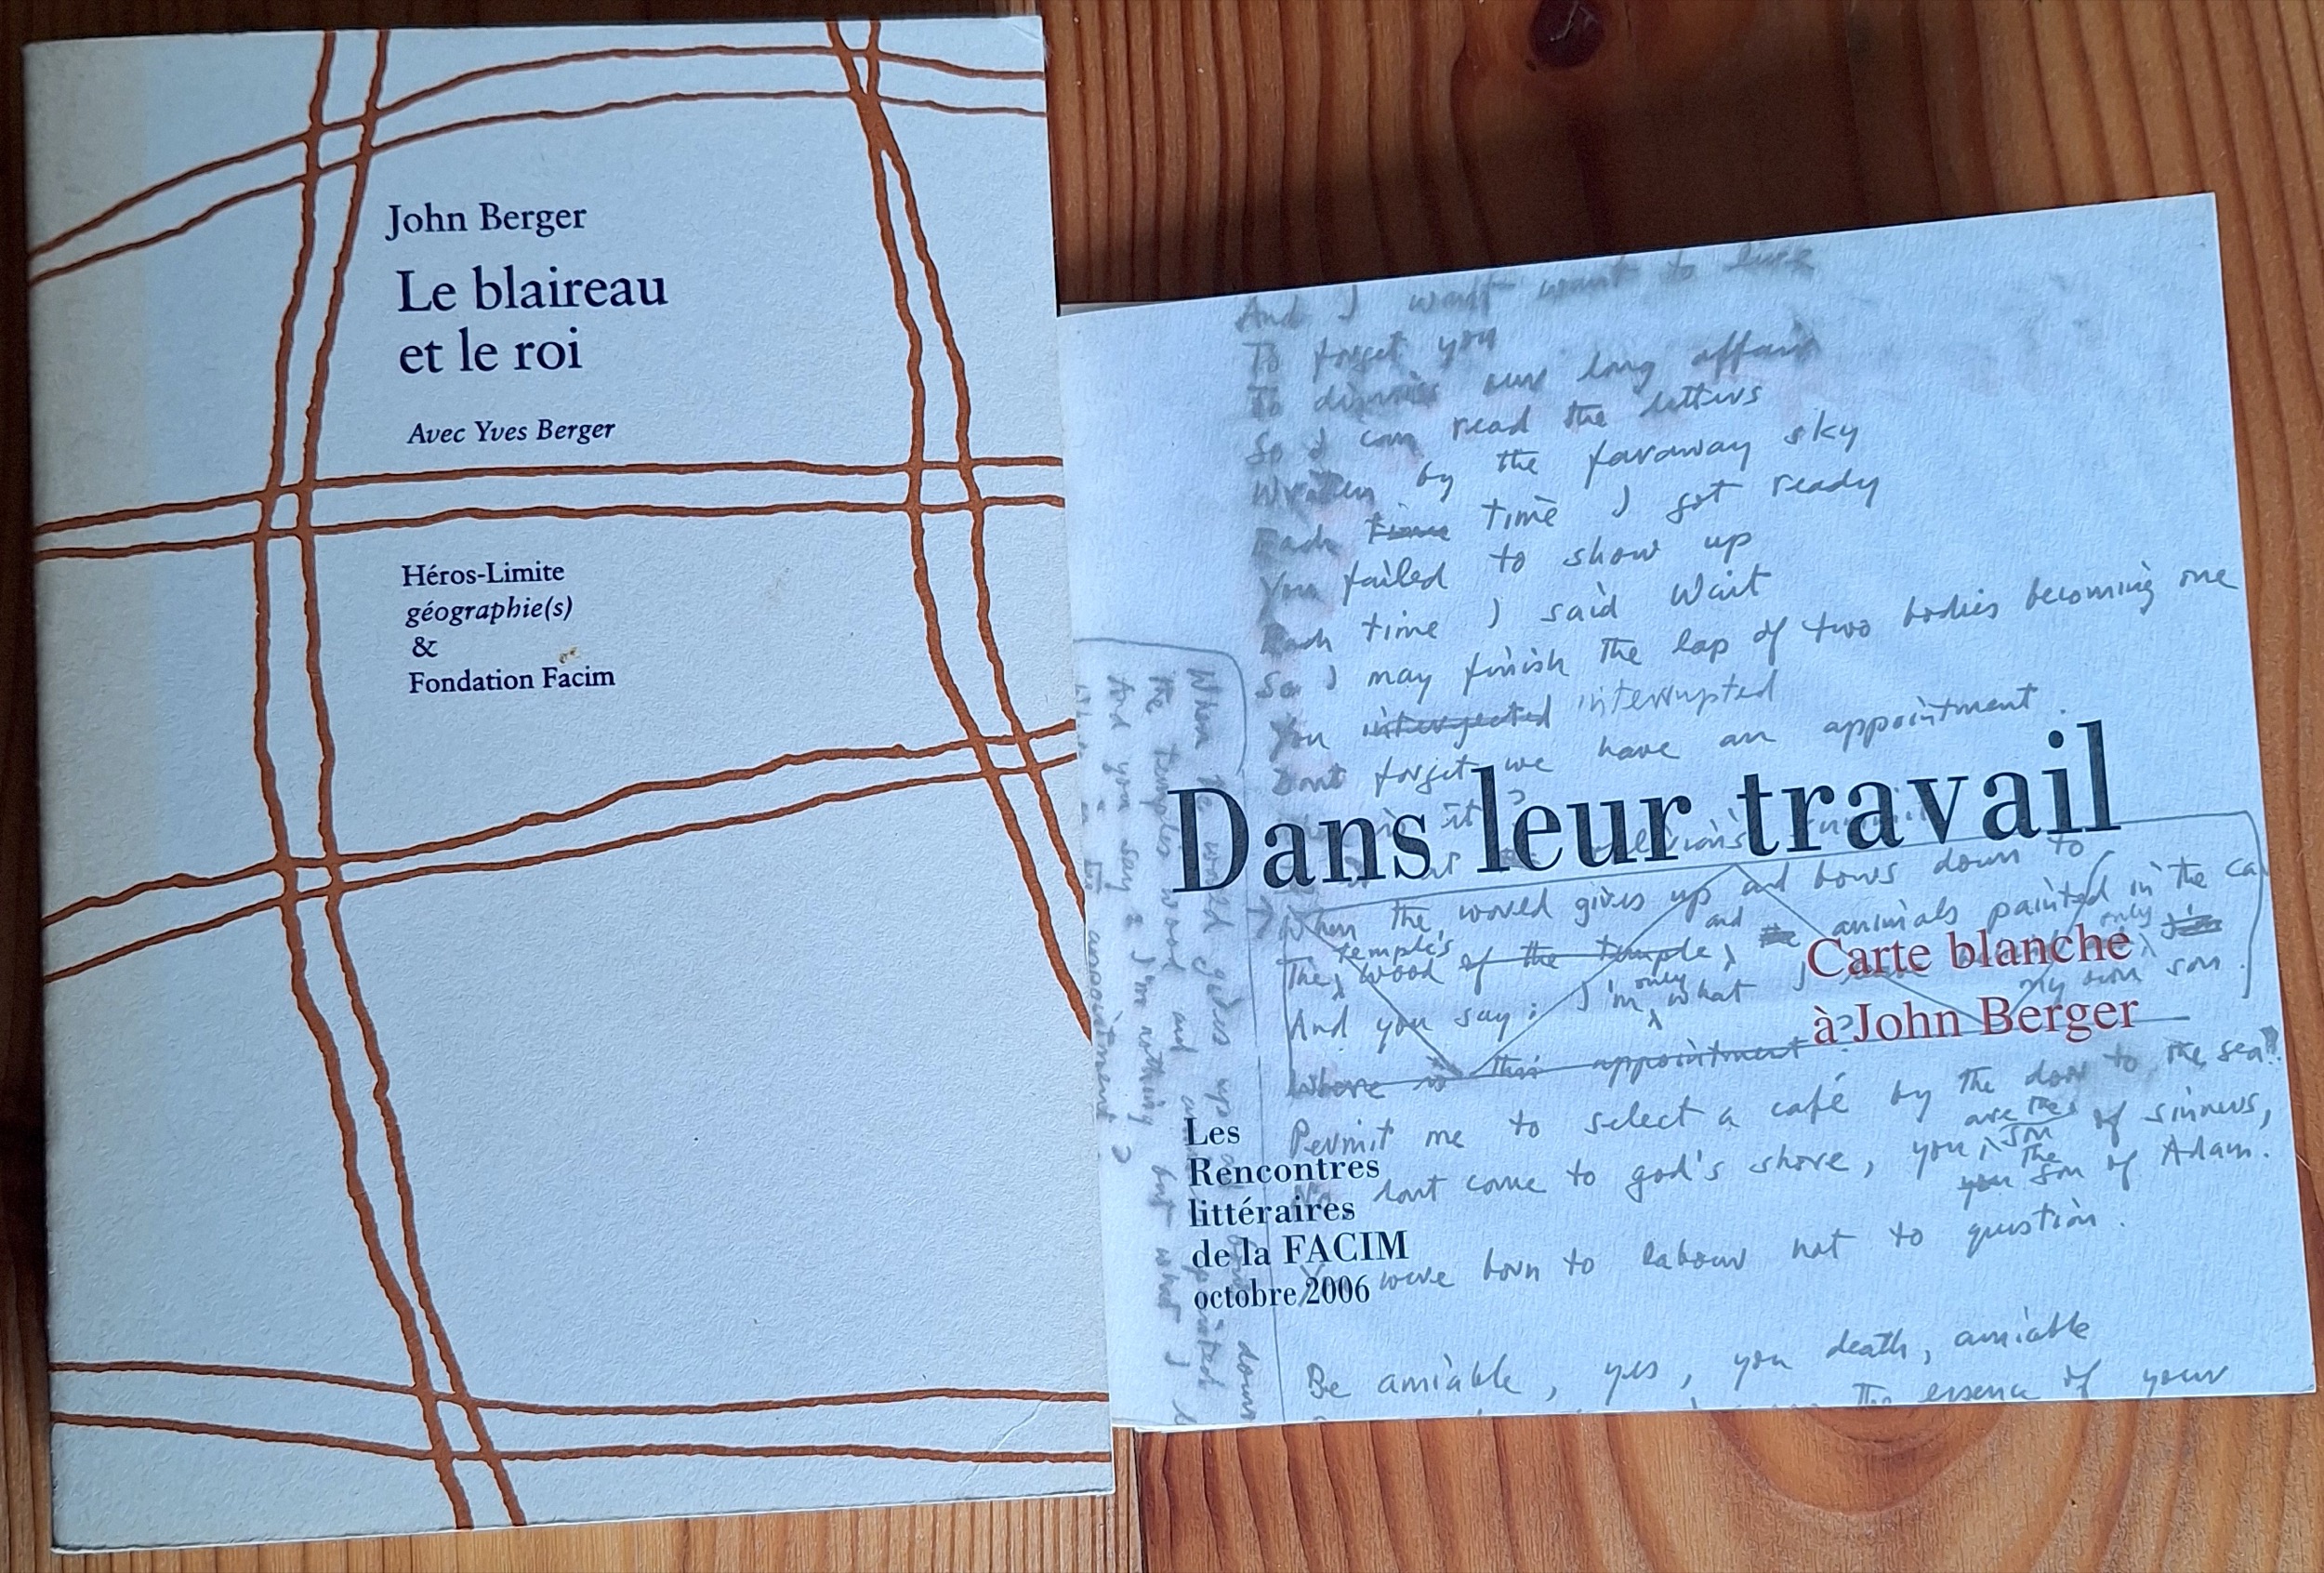 John Berger
Le blaireau
et le roi
Avec Yves Berger
Héros-Limite
géographie(s)
&
Fondation Facim
And I want want to live
To forget you
To dismiss our long affair
So I can read the letters
Written by the faraway sky
Each time time I got ready
You failed to show up
Each time I said Wait
So I may finish the lap of two bodies becoming one
You interjected interrupted
Dont forget we have an appointment.
Dans leur travail
When the world gives up and bows down to
temple's and only
The wood of the temple, the animals painted in the ca
only my own son.
And you say: I'm what I
Where is this appointment ?
Carte blanche
à John Berger
Permit me to select a café by the door to the sea?
are the son
No dont come to god's shore, you, of sinners,
the
you son of Adam.
You were born to labour not to question.
Be amiable, yes, you death, amiable
the essence of your
When the world gives up and bows down
the temples wood and animals painted
And you say I'm nothing but what I
appointment ?
Les
Rencontres
littéraires
de la FACIM
octobre 2006